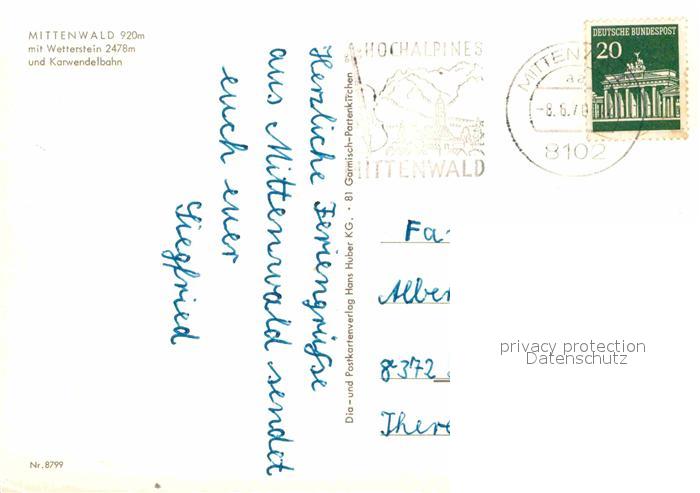 MITTENWALD 920m
mit Wetterstein 2478m
und Karwendelbahn
Herzliche Feriengrüße
aus Mittenwald sendet
euch euer
Siegfried
Nr. 8799
Dia- und Postkartenverlag Hans Huber KG. · 81 Garmisch-Partenkirchen
HOCHALPINES
MITTENWALD
8102
DEUTSCHE BUNDESPOST
20
Fa
Alber
8372
There
privacy protection
Datenschutz